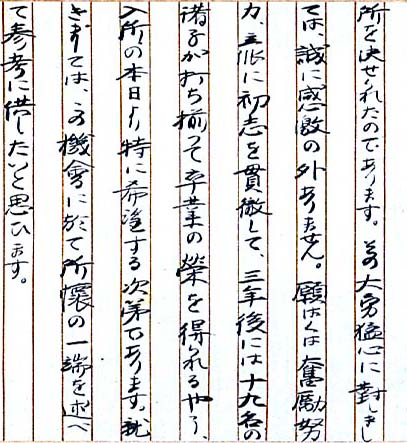 所を決せられたのであります。その大勇猛心に對しまし
ては、誠に感激の外ありません。願はくは奮励努
力、立派に初志を貫徹して、三年後には十九名の
諸子が打ち揃って卒業の榮を得られるやう、
入所の本日より特に希望する次第であります。就
きましては、この機會に於て所懐の一端を述べ
て参考に供したいと思ひます。